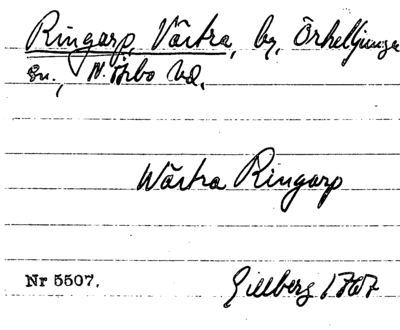 Ringarp, Västra, by, Örkelljunga
sn., N. Åsbo hd.
Wästra Ringarp
Nr 5507. Gillberg 1767